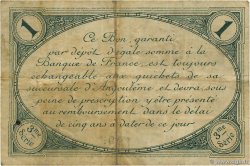 1
1
Ce Bon, garanti
par dépôt d'égale somme à la
Banque de France, est toujours
échangeable aux guichets de sa
succursale d'Angoulême et devra, sous
peine de prescription, être présenté
au remboursement dans le délai
de cinq ans à dater de ce jour
3me Série
3me Série